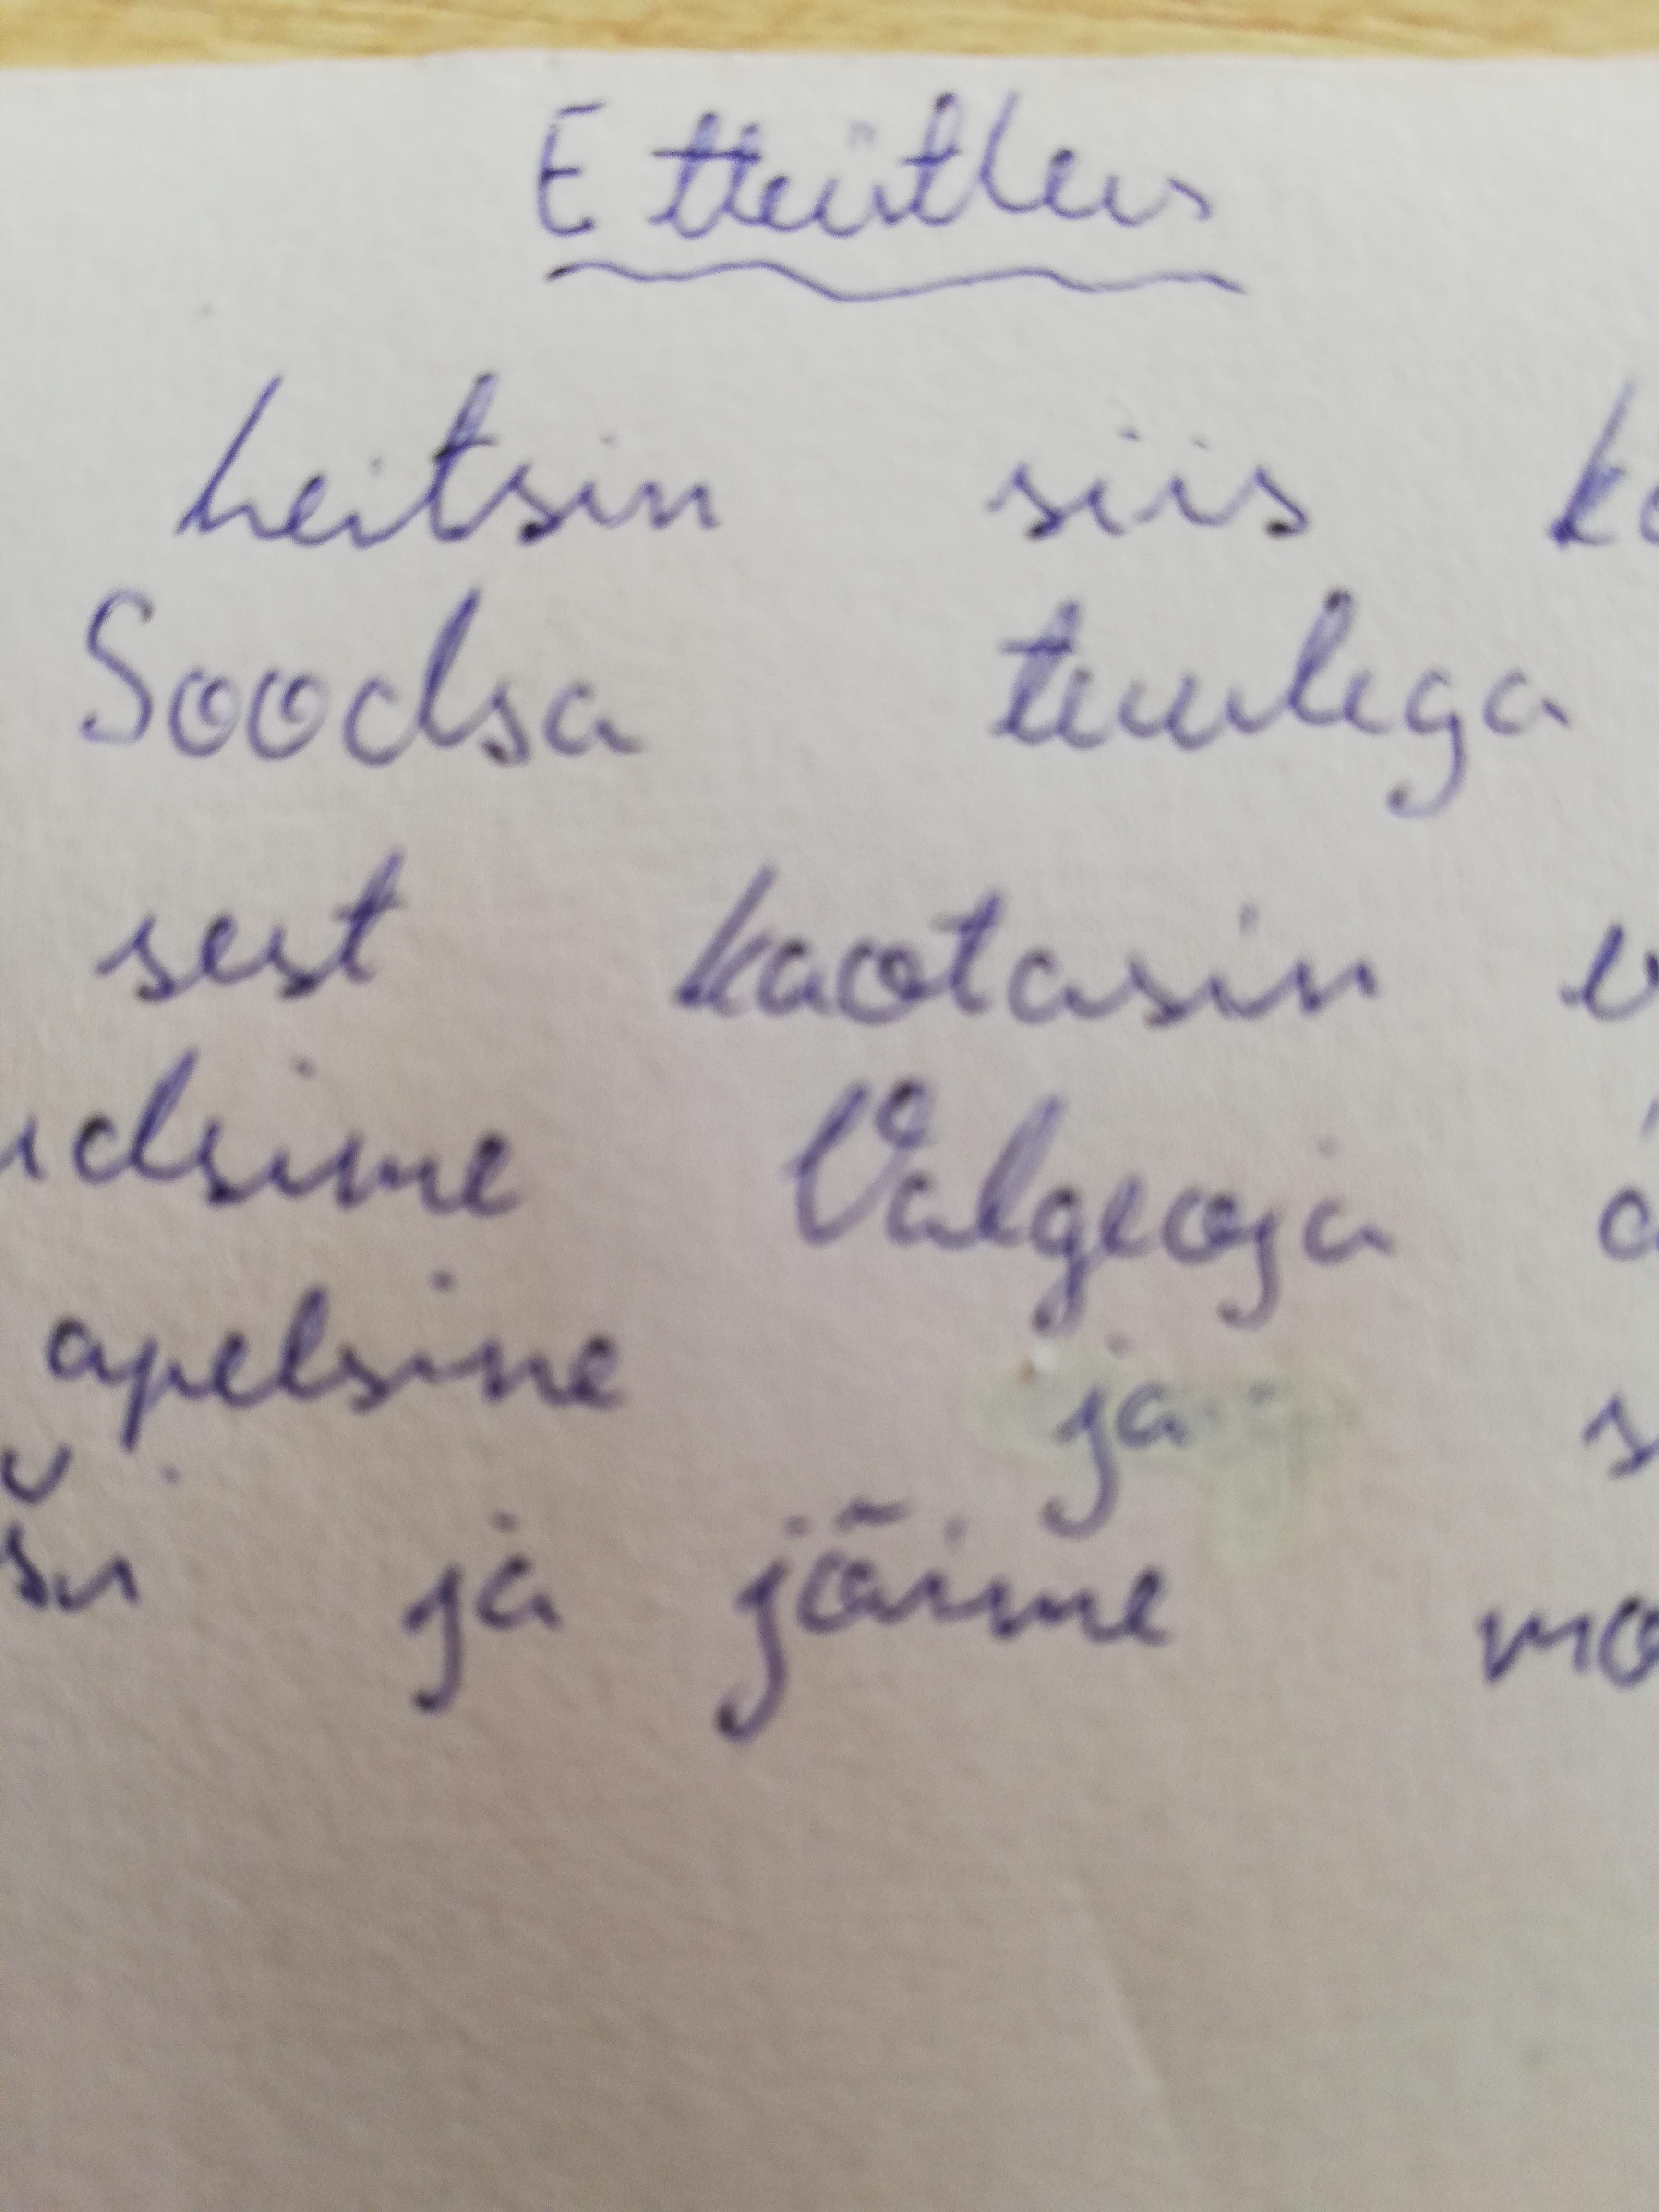 Etteütlus
heitsin siis
Soodsa tuulega
sest kaotasin
Valgeoja
apelsine ja
ja jõime